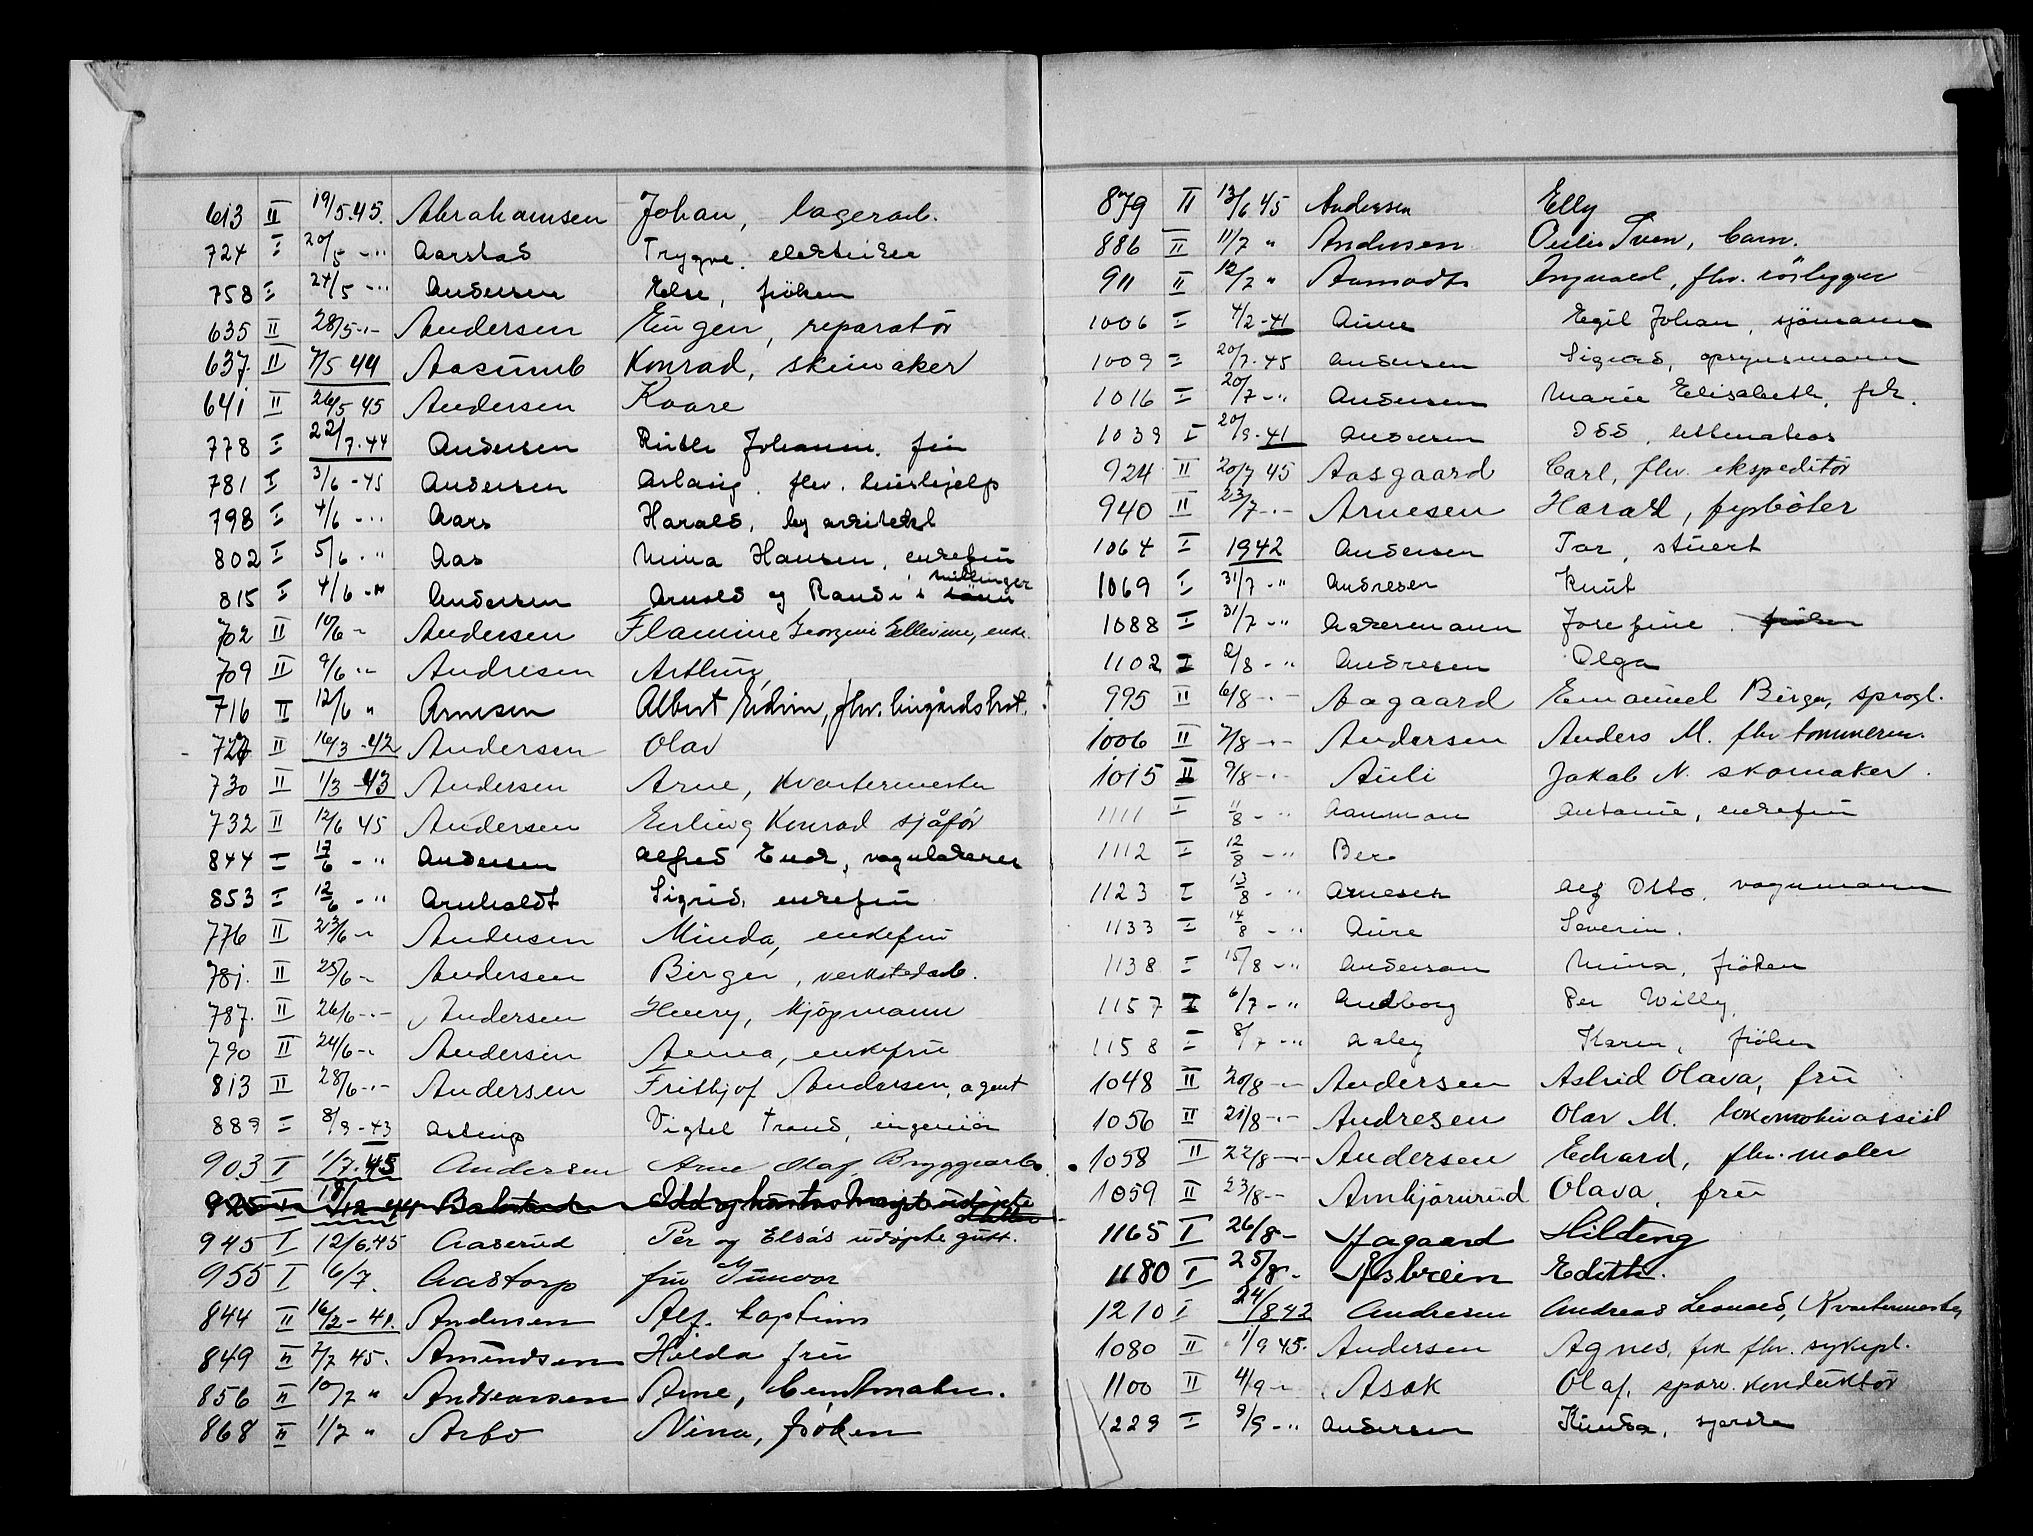 613 II 19/5.45. Abrahamsen Johan, lagerarb.
724 I 20/5 -"- Aarstad Trygve, elektriker
758 I 24/5 -"- Andersen Else, frøken
635 II 28/5 -"- Andersen Eugen, reparatør
637. II 7/5 44 Aasumb Konrad, skinnaker
641 II 26/5 45 Andersen Kaare
778 I 22/7.44 Andersen Ruth Johanne, fru
781 I 3/6 -45 Andersen Aslaug, fhv. hushjelp
798 I 4/6 -"- Aars Harald, byarkitekt
802 I 5/6 -"- Aas Mina Hansen, enkefru
815 I 4/6 -"- Andersen Arnold og Randi's tvillinger
702 II 10/6 - Andersen Flamine Georgine Ellevine, enke.
709 II 9/6 -"- Andresen Arthur,
716 II 12/6 " Arnesen Albert Edvin, fhv.
727 II 16/3 -42 Andersen Olav
730 II 1/3 -43 Andersen Arne, Kvartermester
732 II 12/6 45 Andersen Erling Konrad sjåfør
844 I 17/6 -"- Andersen Alfred Enok, vognlakerer
853 I 12/6 -"- Arnholdt Sigrid, enkefru
776 II 23/6 -"- Andersen Minda, enkefru
781. II 25/6 - Andersen Birger, verkstedarb.
787. II 26/6 -"- Andersen Henry, kjøpmann
790 II 24/6 -"- Andersen Anna, enkefru
813 II 28/6 -"- Andersen Frithjof Andersen, agent
889 I 8/9 -43 Astrup Vigtel Trond, ingeniør
903 I 1/7.45 Andersen Arne Olaf, Bryggearb.
945 I 12/6.45 Aaserud Per og Elsa's udøpte gutt.
955 I 6/7. Aastorp fru Gunvor
844 II 16/2 - 41. Andersen Alf. kaptein
849 II 7/7 45. Amundsen Hilda fru
856 II 10/7 " Andreassen Arne,
868 II 1/7 " Arbo Nina, frøken
879 II 13/6 45 Andersen Elly
886 II 11/7 " Andersen Sven, barn.
911 II 12/7 " Aamodt Ingvald, fhv. rørlegger
1006 I 4/2 -41 Aune Egil Johan, sjømann
1009 I 20/7.45 Andersen Sigurd, opsynsmann
1016 I 20/7 -"- Andersen Marie Elisabeth, frk.
1039 I 20/9.41 Andersen Odd, lettmatros
924 II 20/7 45 Aasgaard Carl, fhv. ekspeditør
940 II 23/7 -"- Arnesen Harald, fyrbøter
1064 I 1942 Andersen Tor, stuert
1069 I 31/7 -"- Andresen Knut
1088 I 31/7 -"- Ackermann Josefine, frøken
1102 I 2/8 -"- Andresen Olga
995 II 6/8 -"- Aagaard Emanuel Birger, sprogl.
1006 II 7/8 -"- Andersen Anders M. fhv tømmerm.
1015 II 9/8 -"- Auli Jakob N. skomaker.
1111 I 11/8 -"- Aanman Antonie, enkefru
1112 I 12/8 -"- Berg
1123 I 13/8 -"- Arnesen Alf Otto, vognmann
1133 I 14/8 -"- Aure Severin.
1138 I 15/8 -"- Anderson Mina, frøken
1157 I 6/7 -"- Andborg Per Willy,
1158 I 8/7 -"- Aalby Karen, frøken
1048 II 20/8 -"- Andersen Astrid Olava, fru
1056 II 21/8 -"- Andresen Olav M. lokomotivassist
1058 II 22/8 -"- Andersen Edvard, fhv. maler
1059 II 23/8 -"- Arnbjørnrud Olava, fru
1165 I 26/8 - Aagaard Hilding
1180 I 25/8 - Asbrein Edith.
1210 I 24/8 42 Andresen Andreas Leonard, Kvartermester
1080 II 1/9 45. Andersen Agnes, frk fhv. sykepl.
1100 II 4/9 - Asak Olaf, sporv. konduktør
1229 I 9/9 -"- Andersen syerske